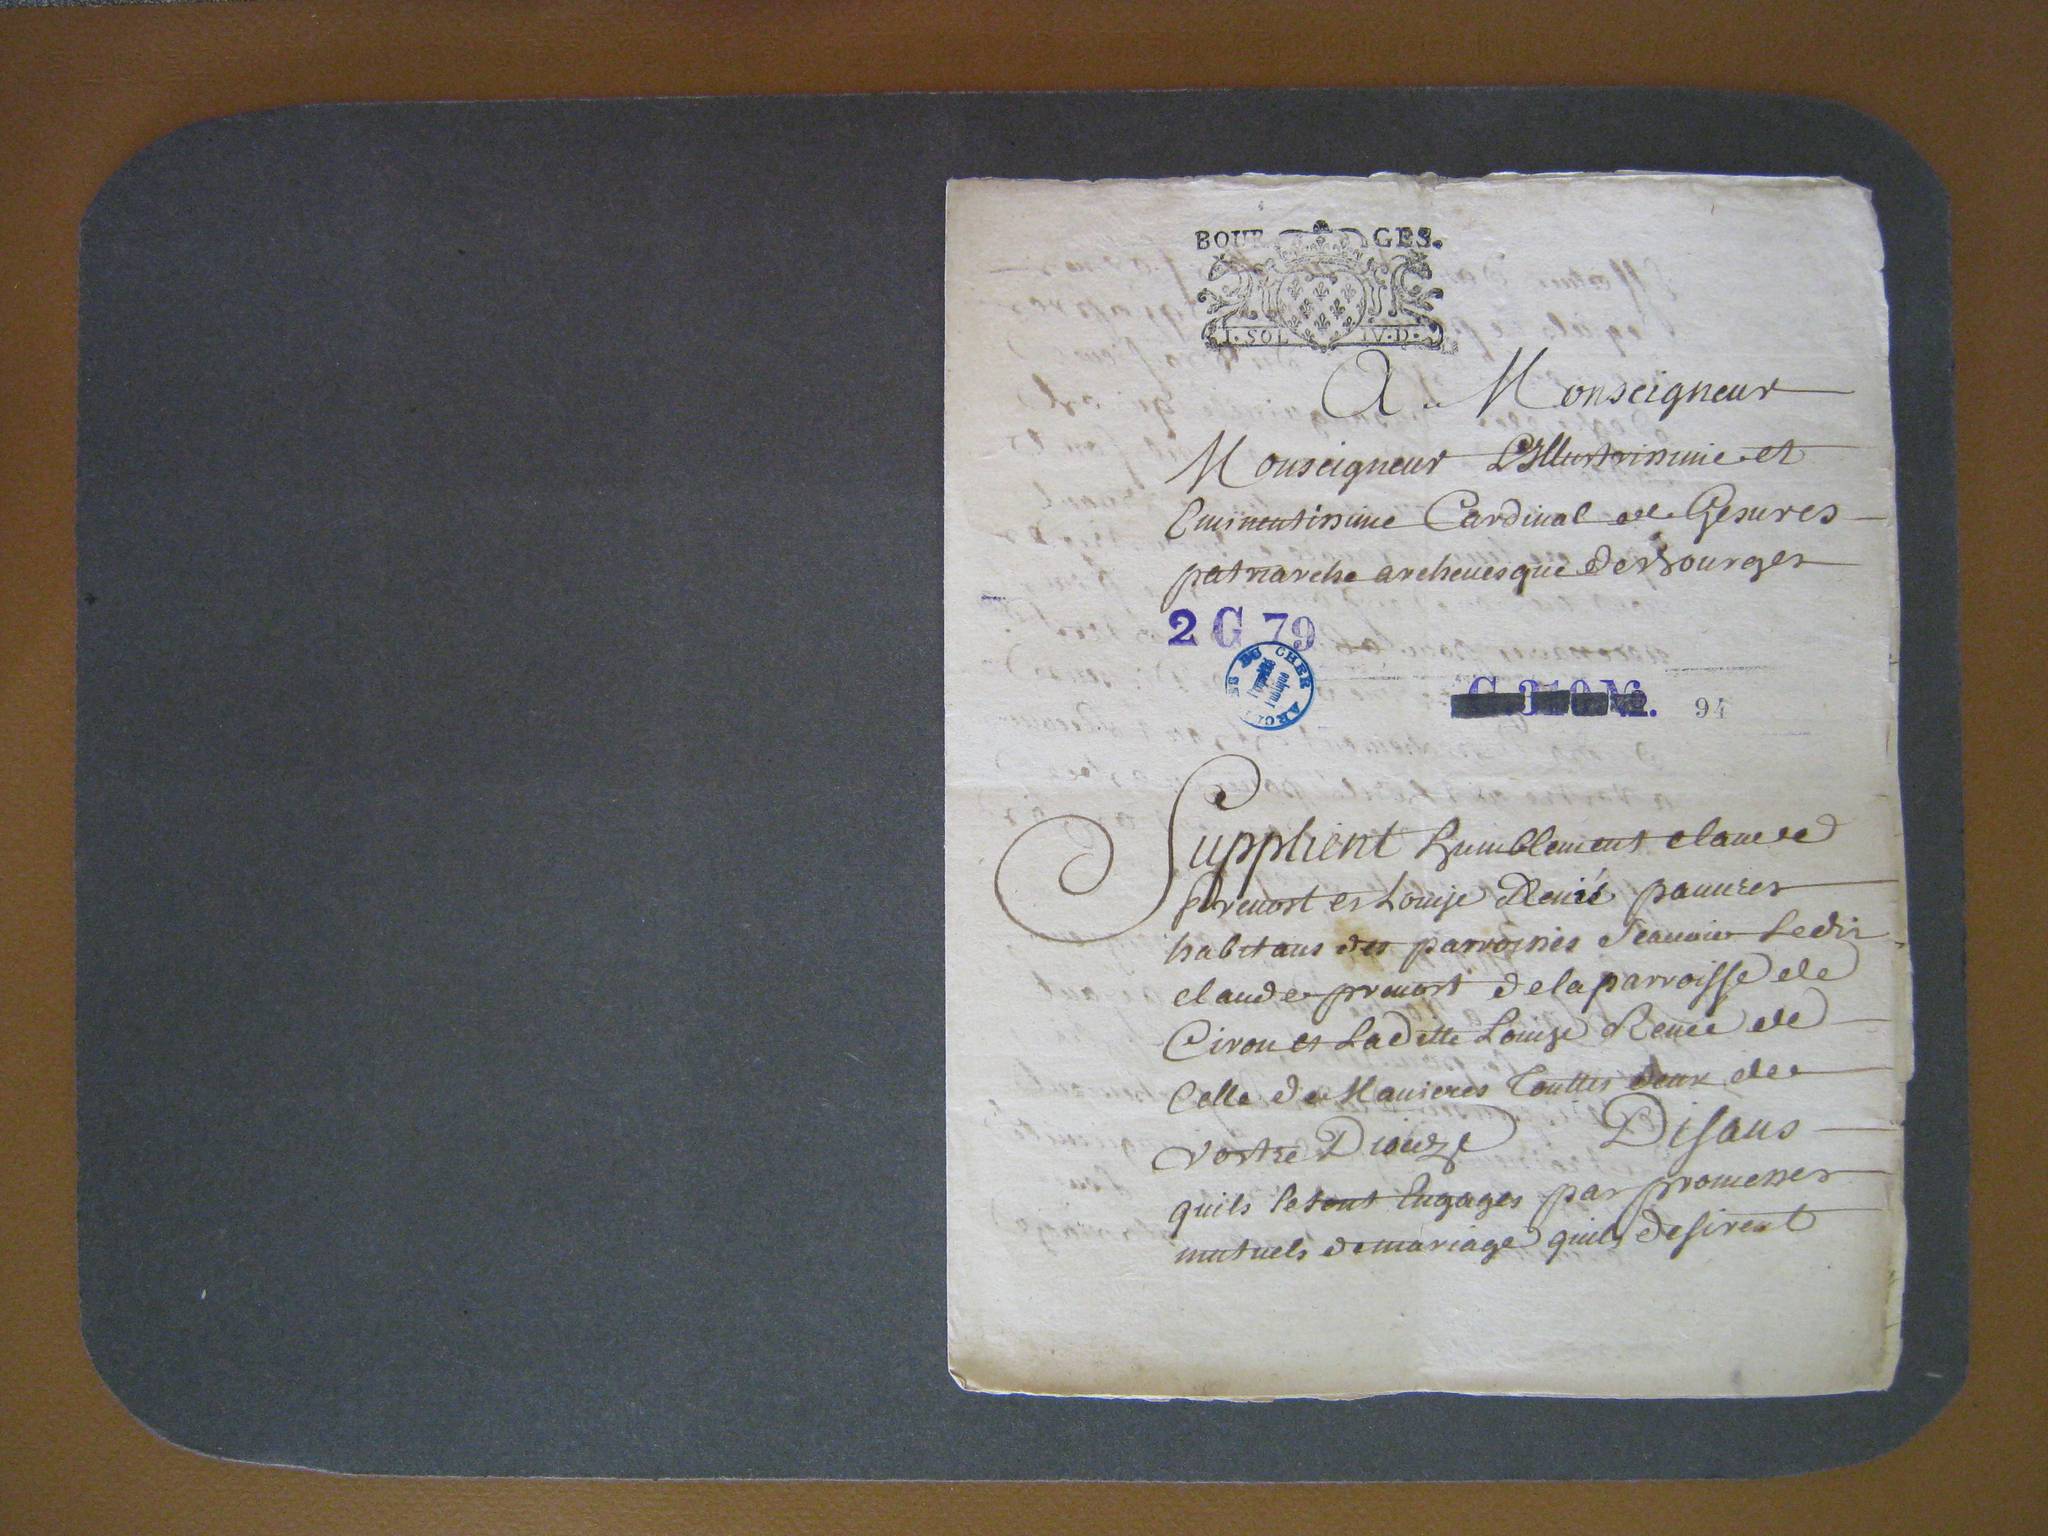 BOUR GES.
I. SOL IV. D.
A Monseigneur
Monseigneur L'Illustrissime et
Eminentissime Cardinal de Gesvres
patriarche archevesque de Bourges
2 G 79
DU CHER
94
Supplient humblement claude
Prevost et Louise Renée pauvres
habitans des parroisses scavoir Ledit
claude prevost de la parroisse de
Ciron et Laditte Louise Renée de
Celle de Mauvieres touttes deux de
vostre Dioceze Disans
quils se sont Engages par promesses
mutuels de mariage quils desirent